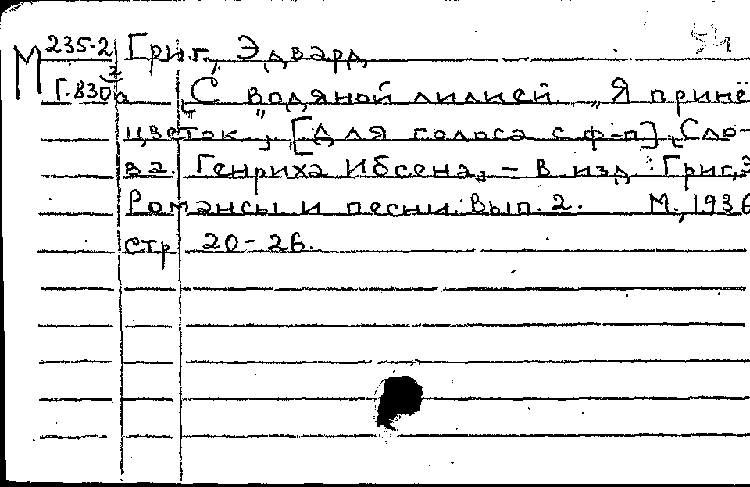 М 235-2 Григ, Эдвард
2
Г.830а „С водяной лилией". „Я принё
цветок", [Для голоса с ф-п]. Сло-
ва Генриха Ибсена. – В изд: Григ, Э
Романсы и песни. Вып. 2. М., 1936
стр 20-26.